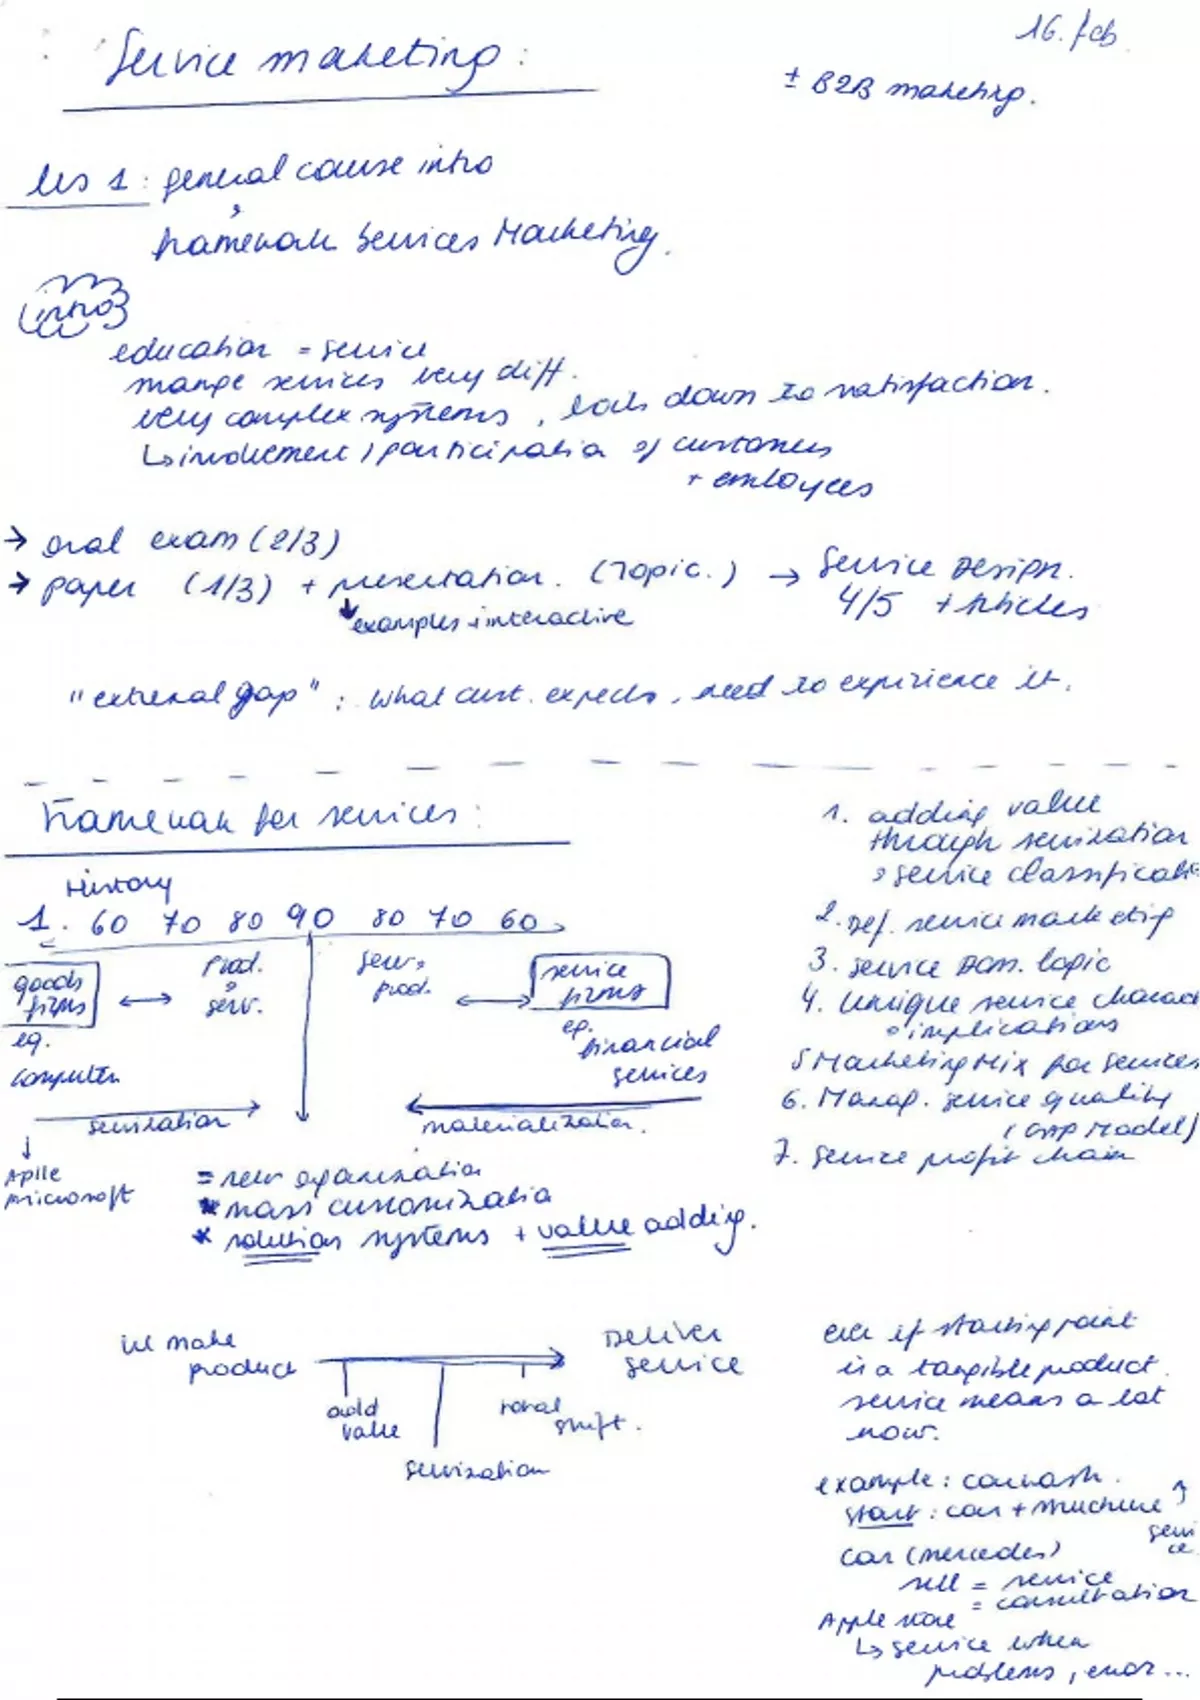 16. feb
Service marketing:
± B2B marketing.
les 1: general course intro
,
framework Services Marketing.
intro
education = service
mange services very diff.
very complex systems, down to satisfaction.
↳ involvement, participation of customers
+ employees
→ oral exam (2/3)
→ paper (1/3) + presentation. (Topic.) → Service Design.
4/5 articles
↓ examples + interactive
"external gap": what cust. expects, need to expirience it.
Framework for services:
History
1. 60 70 80 90 80 70 60
goods firms ↔ prod. , serv.
serv, prod. ↔ service firms
eg.
computer
eg. financial
services
servization
materialization.
↓
Apple
microsoft
= new organization
* mass customization
* solution systems + value adding.
1. adding value
through servization
, service classificati
2. Def. service marketing
3. service Dom. logic
4. Unique service charact
implications
5 Marketing Mix for services
6. Manag. service quality
(GAP Model)
7. Service profit chain
we make
product
Deliver
service
add
value
servization
shift.
even if starting point
is a tangible product.
service means a lot
now.
example: carwash.
start: car + structure ↑
servi
ce.
car (mercedes)
sell = service
= consultation
Apple store
↳ service when
problems, error...